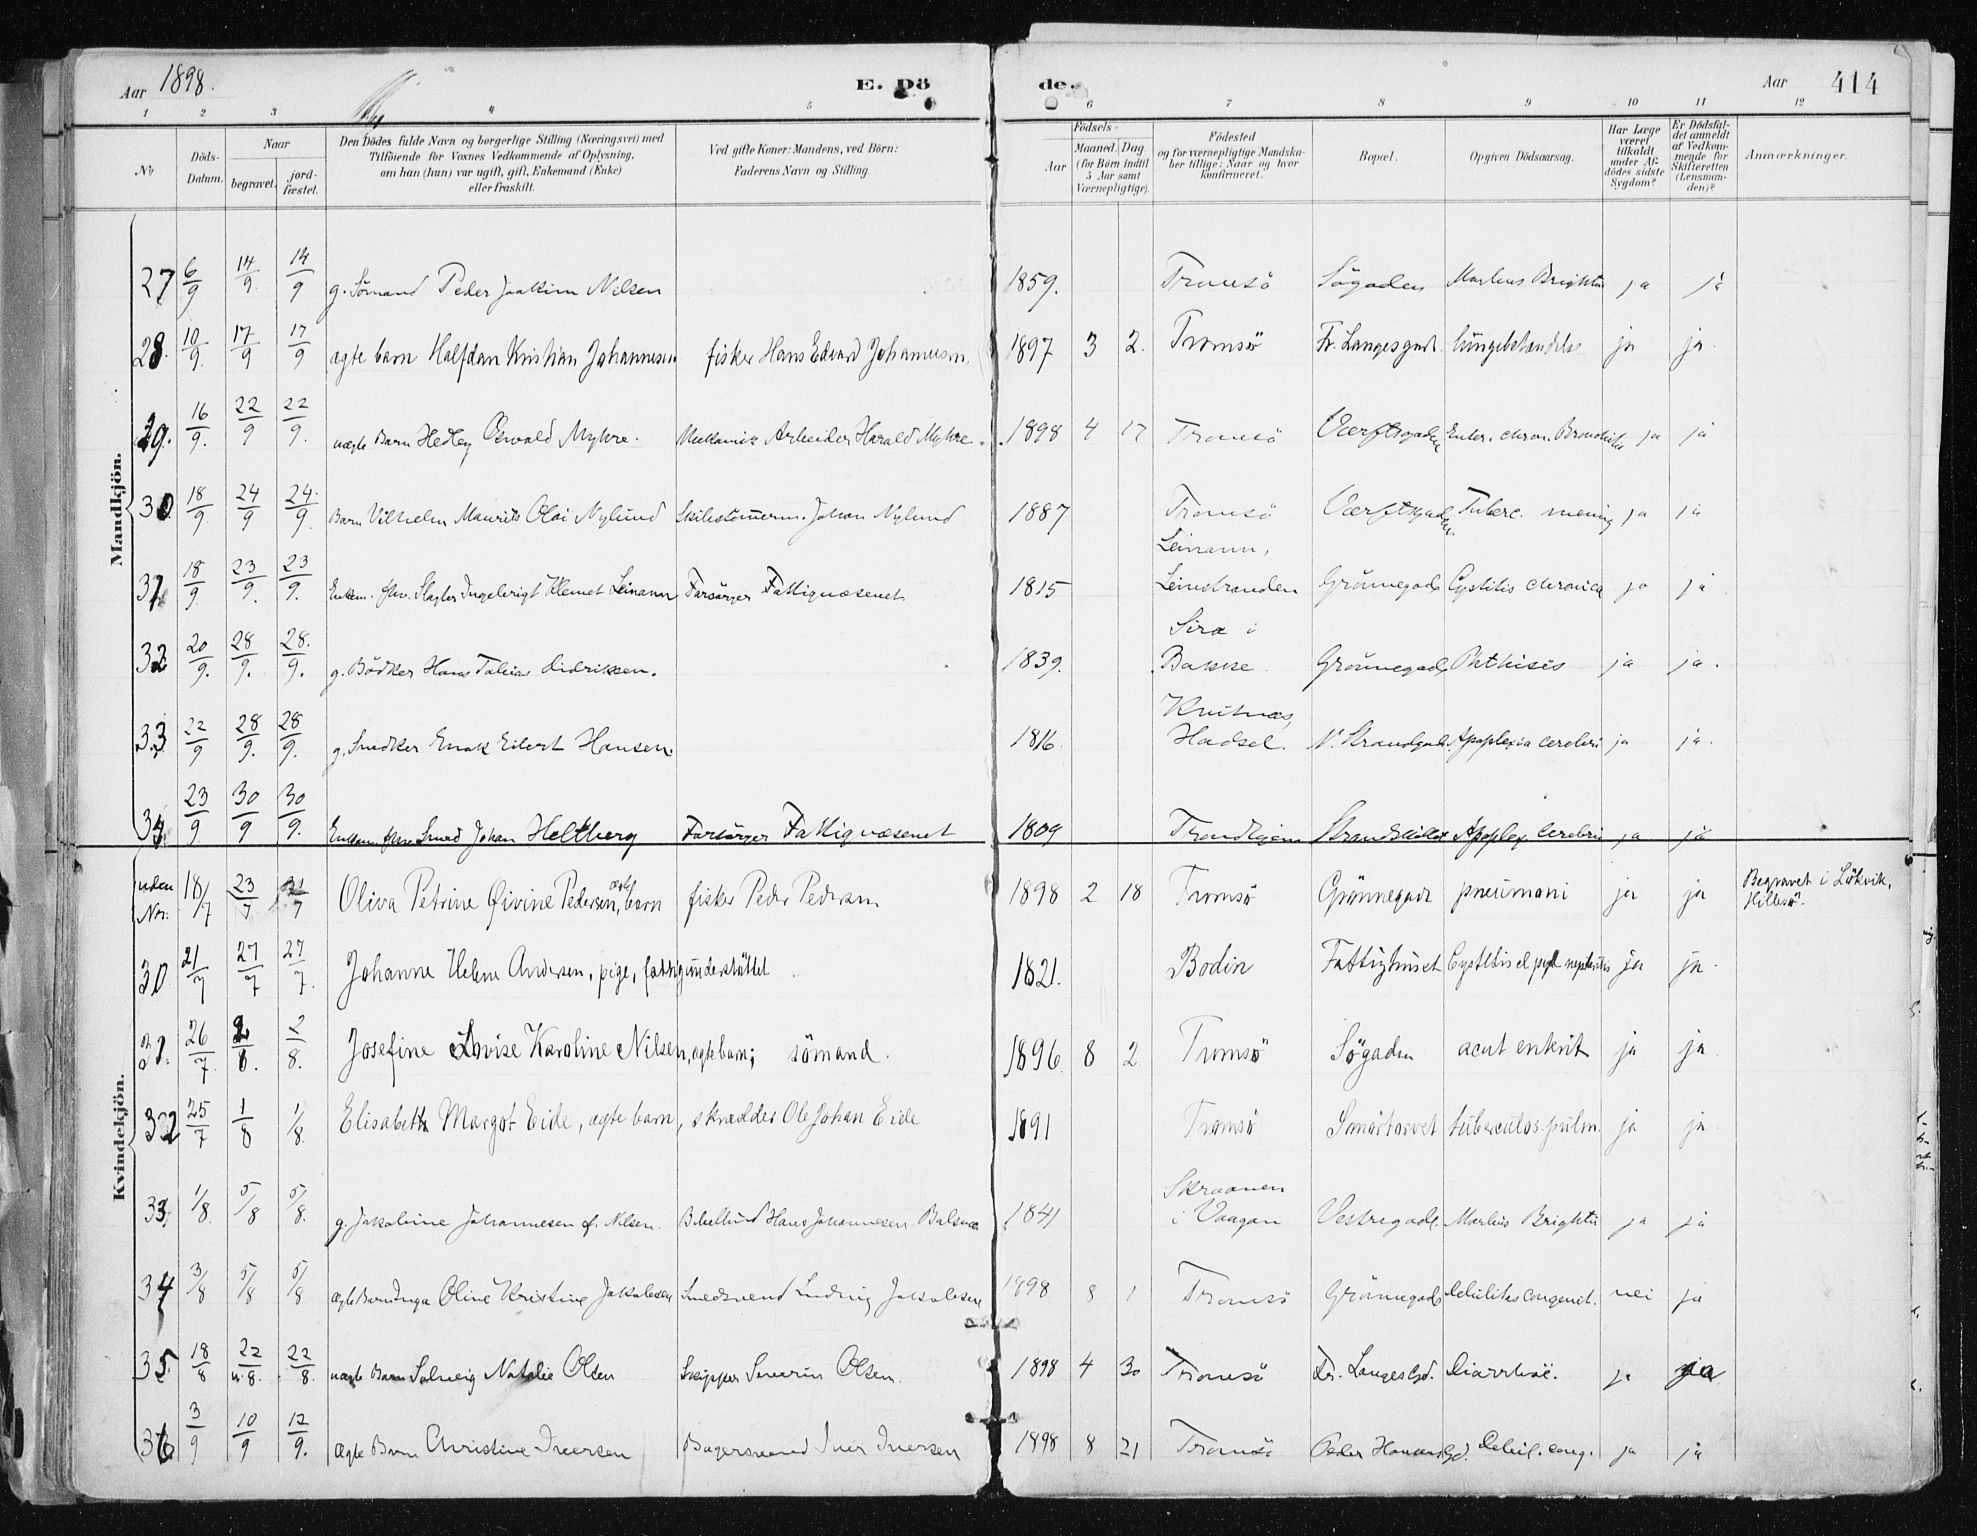 Aar 1898. E. Dö de. Aar 414
1 2 3 4 5 6 7 8 9 10 11 12
No
Döds-Datum.
Naar begravet. jord-fæstet.
Den Dödes fulde Navn og borgerlige Stilling (Næringsvei) med Tilföiende for Voxnes Vedkommende af Oplysning, om han (hun) var ugift, gift, Enkemand (Enke) eller fraskilt.
Ved gifte Koner: Mandens, ved Börn: Faderens Navn og Stilling.
Födsels- Aar Maaned. Dag (for Börn indtil 5 Aar samt Værnepligtige).
Födested og for værnepligtige Mandska-ber tillige: Naar og hvor konfirmeret.
Bopæl.
Opgiven Dödsaarsag.
Har Læge været tilkaldt under Af-dödes sidste Sygdom?
Er Dödsfal-det anmeldt af Vedkom-mende for Skifteretten (Lensman-den)?
Anmærkninger.
Mandkjön.
27 6/9 14/9. 14/9 g. Sömand Peder Joakim Nilsen 1859. Tromsö Sögaden Morbus Brightii ja ja
28. 10/9. 17/9 17/9 ægte barn Halfdan Kristian Johannesen fisker Hans Edvard Johannesen. 1897 3 2. Tromsö Fr. Langesgad. lungebetændelse ja ja.
29. 16/9. 22/9 22/9. uægte Barn Hedley Oswald Myhre. Mekanisk Arbeider Harald Myhre. 1898 4 17 Tromsö Værftsgaden Enter. chron. Bronchitis ja ja
30 18/9. 24/9 24./9. Barn Vilhelm Maurits Olai Nylund Skibstömmerm. Johan Nylund 1887 Tromsö Værftsgaden Tuberc. mening ja ja
31. 18/9 23/9. 23/9. Enkem. fhv. Slagter Ingebrigt Klemet Leinann Forsörger Fattigvæsenet 1815 Leinann, Leinstranden Grönnegade Cystitis chronica ja ja
32 20/9. 28/9. 28./9. g. Bödker Hans Tobias Didriksen. 1839. Sira i Bakke. Grönnegade Phthisis ja ja.
33 22/9 28/9. 28/9. g. Snedker Enok Eilert Hansen. 1816. Kvitnes, Hadsel. N. Strandgade. Apoplexia cerebri ja ja.
34. 23/9 30/9 30/9. Enkem. fhv. Smed Johan Heltberg Forsörger Fattigvæsenet 1809 Trondhjem Apoplex. cerebri ja ja
Kvindekjön.
uden No: 18/7 23/7 31/7 Oliva Petrine Öivine Pedersen, ægte barn fisker Peder Pedersen 1898 2 18 Tromsö Grönnegade pneumoni ja ja Begravet i Lökvik, Hillesö.
30 21/7 27/7 27/7. Johanne Helene Andersen, pige, fattigunderstöttet 1821. Bodin Fattighuset Cystitis et nephritis ja ja.
31. 26/7. 2/8. 2/8. Josefine Lovise Karoline Nilsen, ægte barn; sömand. 1896. 8 2 Tromsö Sögaden acut enterit ja ja
32 25/7 1/8 1/8. Elisabeth Margot Eide, ægte barn, skrædder Ole Johan Eide 1891 Tromsö Smörtorvet tuberculos. pulm. ja ja.
33. 1/8. 5/8 5/8. g. Jakobine Johannesen f. Nilsen. Hans Johannesen 1841 Skraanen i Vaagan Vestregade. Morbus Brightii ja ja
34 3/8 5/8 5/8 ægte Barn Inga Oline Kristine Jakobsen Smedsvend Ludvig Jakobsen 1898 8 1 Tromsö Grönnegade Debilitas congenit. nei ja
35. 18/8 22/8. 22/8. uægte Barn Solveig Natalie Olsen Skipper Severin Olsen. 1898 4 30 Tromsö Fr. Langes Gd. Diarrhoe. ja ja.
36 3/9 10/9 12/9. ægte Barn Christine Iversen Bagersvend Iver Iversen 1898 8 21 Tromsö Peder Hansens Gd. Debil. cong. ja ja